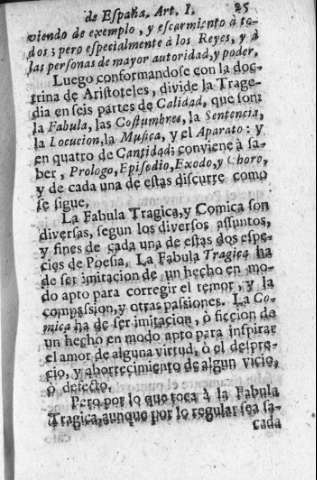 de España. Art. I. 85
viendo de exemplo, y escarmiento à to-
dos; pero especialmente à los Reyes, y à
las personas de mayor autoridad, y poder.
Luego conformandose con la doc-
trina de Aristoteles, divide la Trage-
dia en seis partes de Calidad, que son:
la Fabula, las Costumbres, la Sentencia,
la Locucion, la Musica, y el Aparato: y
en quatro de Cantidad; conviene à sa-
ber, Prologo, Episodio, Exodo, y Choro,
y de cada una de estas discurre como
se sigue.
La Fabula Tragica, y Comica son
diversas, segun los diversos assuntos,
y fines de cada una de estas dos espe-
cies de Poesia. La Fabula Tragica ha
de ser imitacion de un hecho en mo-
do apto para corregir el temor, y la
compassion, y otras passiones. La Co-
mica ha de ser imitacion, ò ficcion de
un hecho en modo apto para inspirar
el amor de alguna virtud, ò el despre-
cio, y aborrecimiento de algun vicio,
ò defecto.
Pero por lo que toca à la Fabula
Tragica, aunque por lo regular sea sa-
cada